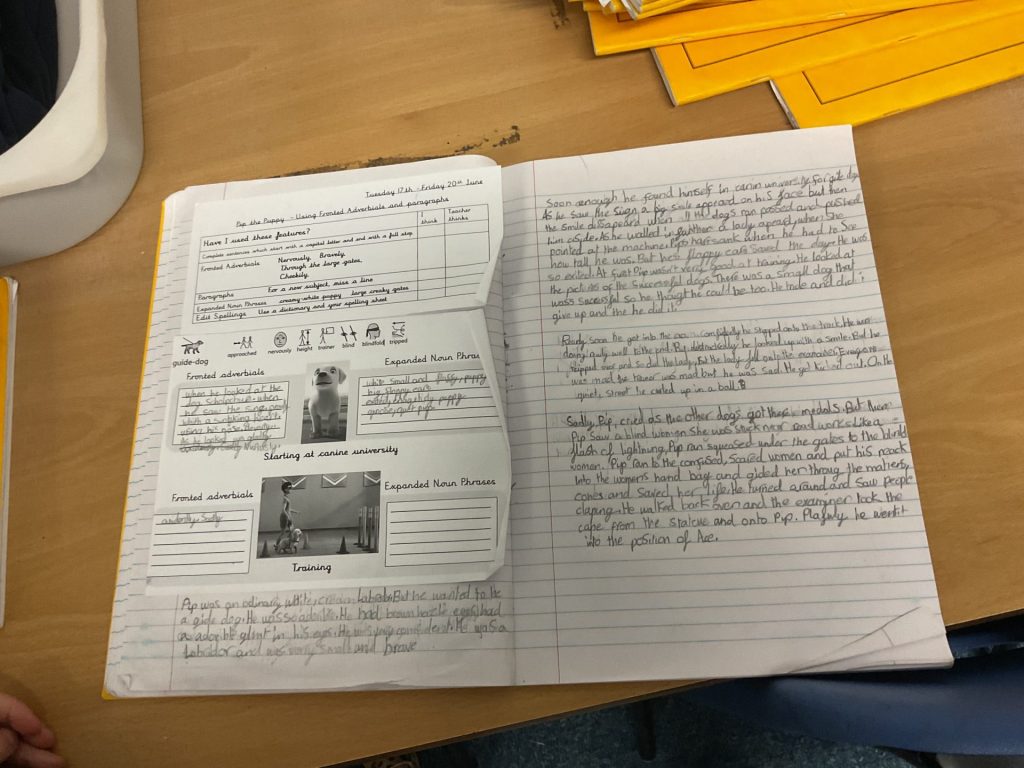 Tuesday 17th - Friday 20th June
Pip the Puppy - Using Fronted Adverbials and paragraphs
Have I used these features?
I think
Teacher thinks
Complete sentences which start with a capital letter and end with a full stop
Fronted Adverbials Nervously, Bravely,
Through the large gates,
Cheekily,
Paragraphs For a new subject, miss a line
Expanded Noun Phrases creamy-white puppy large creaky gates
Edit Spellings Use a dictionary and your spelling sheet
guide-dog approached nervously height trainer blind blindfold tripped
Fronted adverbials
when he looked at the
he saw the sign
using his nose
As he looked
Expanded Noun Phrases
white small and fluffy puppy
big floppy ears
puppy
Starting at canine university
Fronted adverbials
Sadly
Expanded Noun Phrases
Training
Pip was an ordinary white, cream Labrador. But he wanted to be
a gide dog. He was so adorible. He had brown hazle eyes, had
a adorible glint in his eyes. He was very considerate. He was a
Labrador and was very small and brave
Soon anough he found himself in canin university for gide dogs
As he saw the sign a big smile appeard on his face but then
the smile disapeared when all the dogs ran passed and pushed
him aside. As he walled in further a lady apeard, when She
pointed at the machine. Pips hart sank when he had to see
how tall he was. But he's flappy ears saved the day. He was
so exited. At furst Pip wasn't very good at training. He looked at
the pictures of the Successful dogs. There was a small dog that
wass Sucessful so he though he could be too. He tride and did
give up and the he did it.
Pritty soon he got into the exam. Confidently he stepped onto the track. He was
doing quiy well to the end. Pip distractedly he looked up with a smile. But he
tripped over and so did the lady. But the lady fell onto the examoner. Everyone
was mad the trainer was mad but he was sad. He got kicked out. On the
quiet, street he curled up in a ball.
Sadly, Pip, cried as the other dogs got there medals. But then
Pip Saw a blind women. She was stuck near road works. Like a
flash of lightning, Pip ran squeased under the gates to the blind
women. Pip ran to the confused, Scared women and put his neack
into the womens hand bag and gided her throug the
cones and Saved her life. He turned around and Saw people
claping. He walked back over and the examiner took the
cape from the statue and onto Pip. Playfuly he went
into the position of Ace.